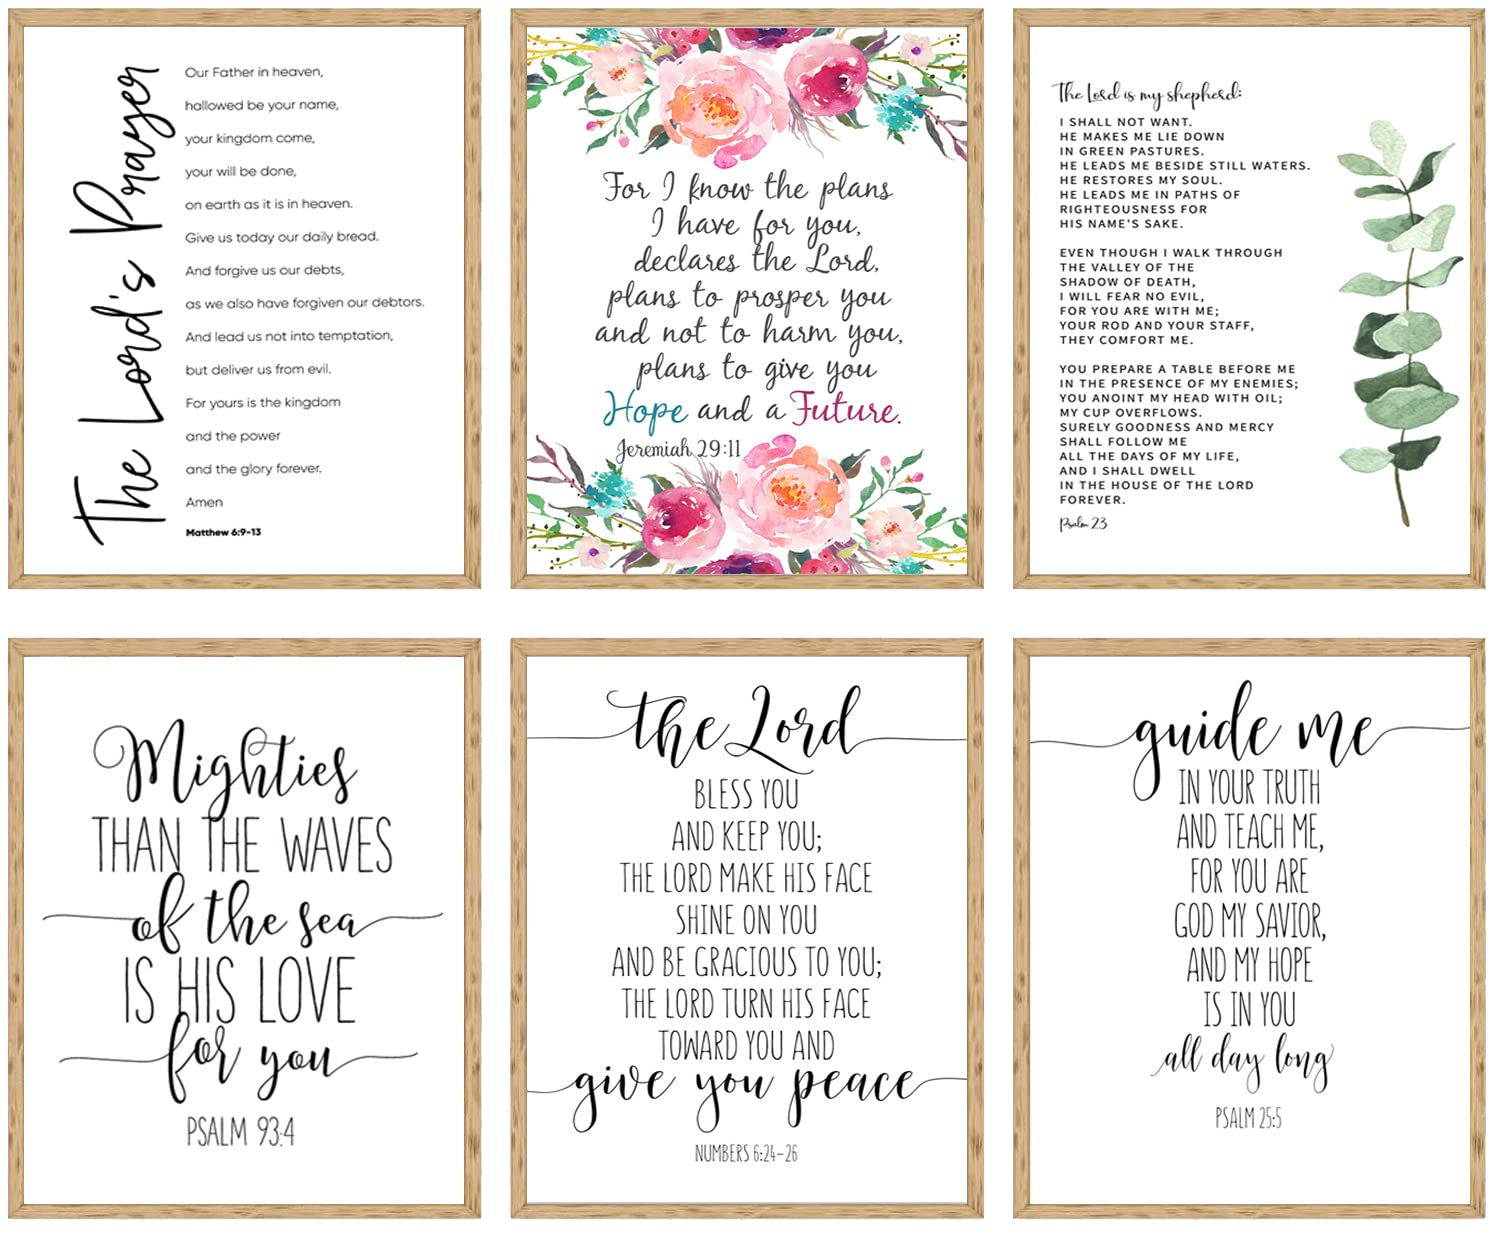 The Lord's Prayer
Our Father in heaven,
hallowed be your name,
your kingdom come,
your will be done,
on earth as it is in heaven.
Give us today our daily bread.
And forgive us our debts,
as we also have forgiven our debtors.
And lead us not into temptation,
but deliver us from evil.
For yours is the kingdom
and the power
and the glory forever.
Amen
Matthew 6:9-13
For I know the plans
I have for you,
declares the Lord,
plans to prosper you
and not to harm you,
plans to give you
Hope and a Future.
Jeremiah 29:11
The Lord is my shepherd:
I SHALL NOT WANT.
HE MAKES ME LIE DOWN
IN GREEN PASTURES.
HE LEADS ME BESIDE STILL WATERS.
HE RESTORES MY SOUL.
HE LEADS ME IN PATHS OF
RIGHTEOUSNESS FOR
HIS NAME'S SAKE.
EVEN THOUGH I WALK THROUGH
THE VALLEY OF THE
SHADOW OF DEATH,
I WILL FEAR NO EVIL,
FOR YOU ARE WITH ME;
YOUR ROD AND YOUR STAFF,
THEY COMFORT ME.
YOU PREPARE A TABLE BEFORE ME
IN THE PRESENCE OF MY ENEMIES;
YOU ANOINT MY HEAD WITH OIL;
MY CUP OVERFLOWS.
SURELY GOODNESS AND MERCY
SHALL FOLLOW ME
ALL THE DAYS OF MY LIFE,
AND I SHALL DWELL
IN THE HOUSE OF THE LORD
FOREVER.
Psalm 23
Mighties
THAN THE WAVES
of the sea
IS HIS LOVE
for you
PSALM 93:4
the Lord
BLESS YOU
AND KEEP YOU;
THE LORD MAKE HIS FACE
SHINE ON YOU
AND BE GRACIOUS TO YOU;
THE LORD TURN HIS FACE
TOWARD YOU AND
give you peace
NUMBERS 6:24-26
guide me
IN YOUR TRUTH
AND TEACH ME,
FOR YOU ARE
GOD MY SAVIOR,
AND MY HOPE
IS IN YOU
all day long
PSALM 25:5